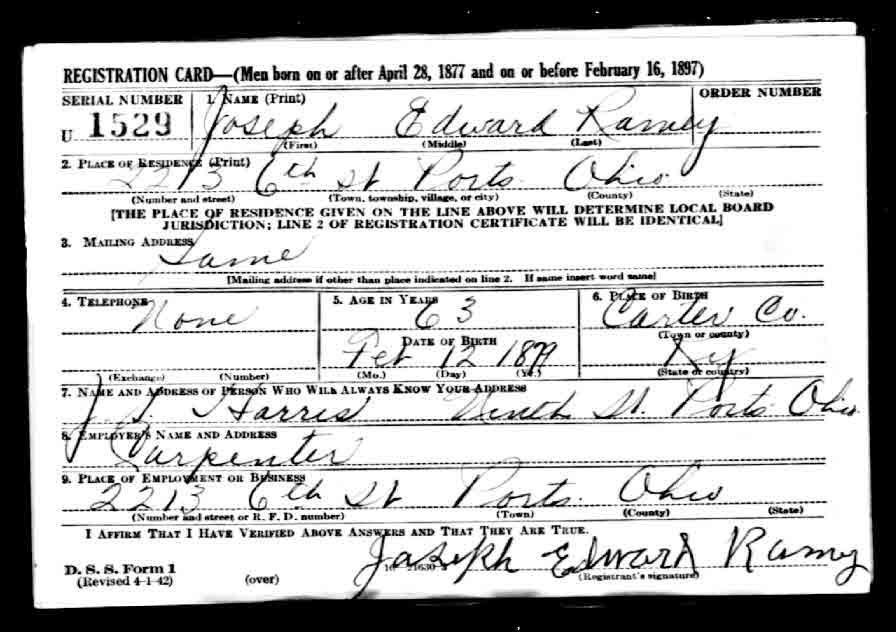 REGISTRATION CARD—(Men born on or after April 28, 1877 and on or before February 16, 1897)
SERIAL NUMBER 1. NAME (Print) ORDER NUMBER
U 1529 Joseph Edward Ramey
(First) (Middle) (Last)
2. PLACE OF RESIDENCE (Print)
2213 6th St Ports. Ohio
(Number and street) (Town, township, village, or city) (County) (State)
[THE PLACE OF RESIDENCE GIVEN ON THE LINE ABOVE WILL DETERMINE LOCAL BOARD
JURISDICTION; LINE 2 OF REGISTRATION CERTIFICATE WILL BE IDENTICAL]
3. MAILING ADDRESS
Same
[Mailing address if other than place indicated on line 2. If same insert word same]
4. TELEPHONE 5. AGE IN YEARS 6. PLACE OF BIRTH
None 63 Carter Co.
(Town or county)
DATE OF BIRTH
Feb 12 1879 Ky
(Exchange) (Number) (Mo.) (Day) (Yr.) (State or country)
7. NAME AND ADDRESS OF PERSON WHO WILL ALWAYS KNOW YOUR ADDRESS
J. S. Harris Ninth St. Ports Ohio
8. EMPLOYER'S NAME AND ADDRESS
Carpenter
9. PLACE OF EMPLOYMENT OR BUSINESS
2213 6th St Ports. Ohio
(Number and street or R. F. D. number) (Town) (County) (State)
I AFFIRM THAT I HAVE VERIFIED ABOVE ANSWERS AND THAT THEY ARE TRUE.
Joseph Edward Ramey
D. S. S. Form 1
(Revised 4-1-42) (over) (Registrant's signature)